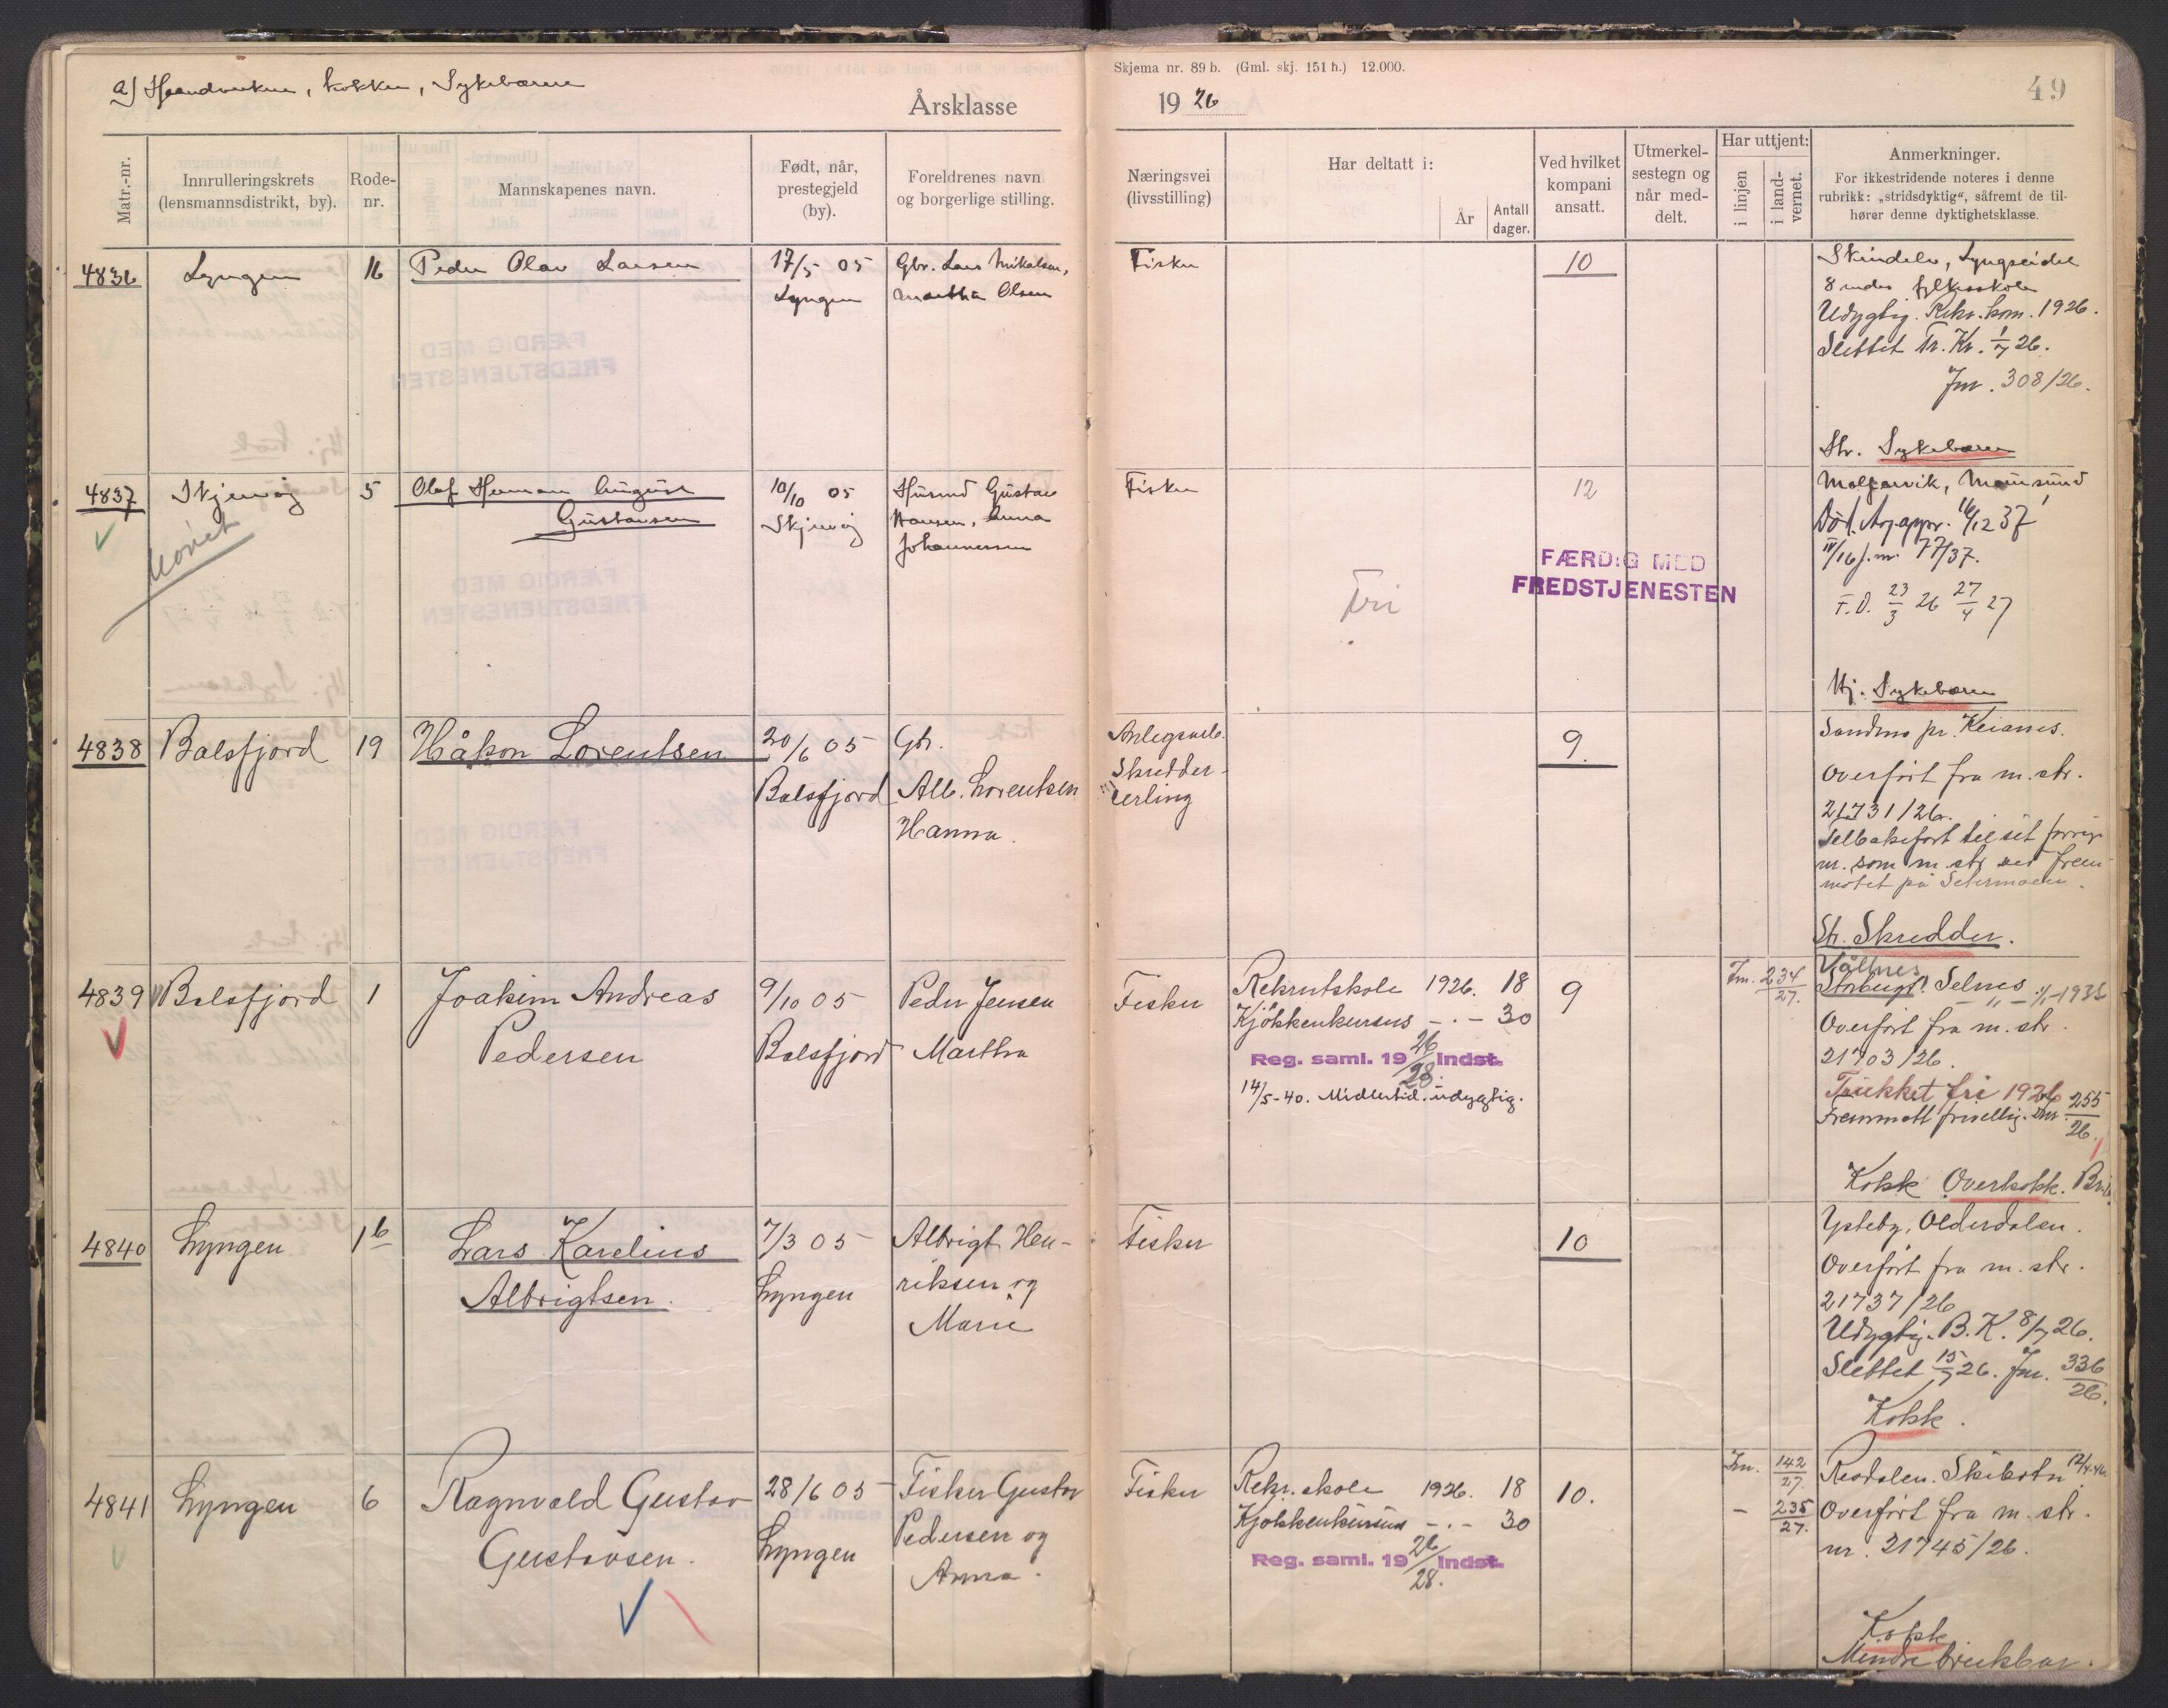 a) Haandverkere, kokker, Sykebærere
Årsklasse
Skjema nr. 89 b. (Gml. skj. 151 h.) 12.000.
1926
49
Matr.-nr.
Innrulleringskrets
(lensmannsdistrikt, by).
Rode-
nr.
Mannskapenes navn.
Født, når,
prestegjeld
(by).
Foreldrenes navn
og borgerlige stilling.
Næringsvei
(livsstilling)
Har deltatt i:
År
Antall
dager.
Ved hvilket
kompani
ansatt.
Utmerkel-
sestegn og
når med-
delt.
Har uttjent:
i linjen
i land-
vernet.
Anmerkninger.
For ikkestridende noteres i denne
rubrikk: „stridsdyktig“, såfremt de til-
hører denne dyktighetsklasse.
4836
Lyngen
16
Peder Olav Larsen
17/5 05
Lyngen
Gbr. Lars Mikalsen,
Martha Olsen
Fisker
10
Skindelv, Lyngseidet
8 mdrs fylkesskole
Udygtig. Rekr. kom. 1926.
Slettet Tr. Kr. 1/7 26.
Jnr. 308/26.
Str. Sykebærer
4837
Skjervøy
5
Olaf Herman August
Gustavsen
10/10 05
Skjervøy
Husmd Gustav
Hansen, Anna
Johannessen
Fisker
Fri
12
FÆRDIG MED
FREDSTJENESTEN
Maursund
Død. 16/12 37
IV/16 j.nr. 77/37.
T.D. 23/3 26 27/4 27
Hj. Sykebærer
4838
Balsfjord
19
Håkon Lorentsen
20/6 05
Balsfjord
Gbr.
Alb. Lorentsen
Hanna.
Anlegsarb.
Skredder-
lerling
9.
Sandnes pr.
Overført fra m. str.
21731/26.
Tilbakeført til sit forrige
nr. som m. str ved frem-
møtet på Setermoen.
Str. Skredder.
4839
Balsfjord
1
Joakim Andreas
Pedersen
9/10 05
Balsfjord
Peder Jensen
Martha
Fisker
Rekrutskole 1926. 18
Kjøkkenkursus - . - 30
Reg. saml. 1926/28 indst.
14/5-40. Midlertid. udygtig.
9
Jnr. 234/27.
Selnes
Overført fra m. str.
21703/26.
Trukket fri 1926
Fremmøtt frivillig. Jnr. 255/26.
Kokk Overkokk.
4840
Lyngen
16
Lars Karelius
Albrigtsen.
7/3 05
Lyngen
Albrigt Hen-
riksen og
Marie
Fisker
10
Ysteby, Olderdalen.
Overført fra m. str.
21737/26
Udygtig. B. K. 8/7 26.
Slettet 15/7 26. Jnr. 336/26.
Kokk.
4841
Lyngen
6
Ragnvald Gustav
Gustavsen.
28/6 05
Lyngen
Fisker Gustav
Pedersen og
Anna.
Fisker
Rekr. skole 1926. 18
Kjøkkenkursus - . - 30
Reg. saml. 1926/28. indst.
10.
Jnr. 142/27.
- 235/27.
Skibotn
Overført fra m. str.
nr. 21745/26.
Kokk
Mindre brukbar.